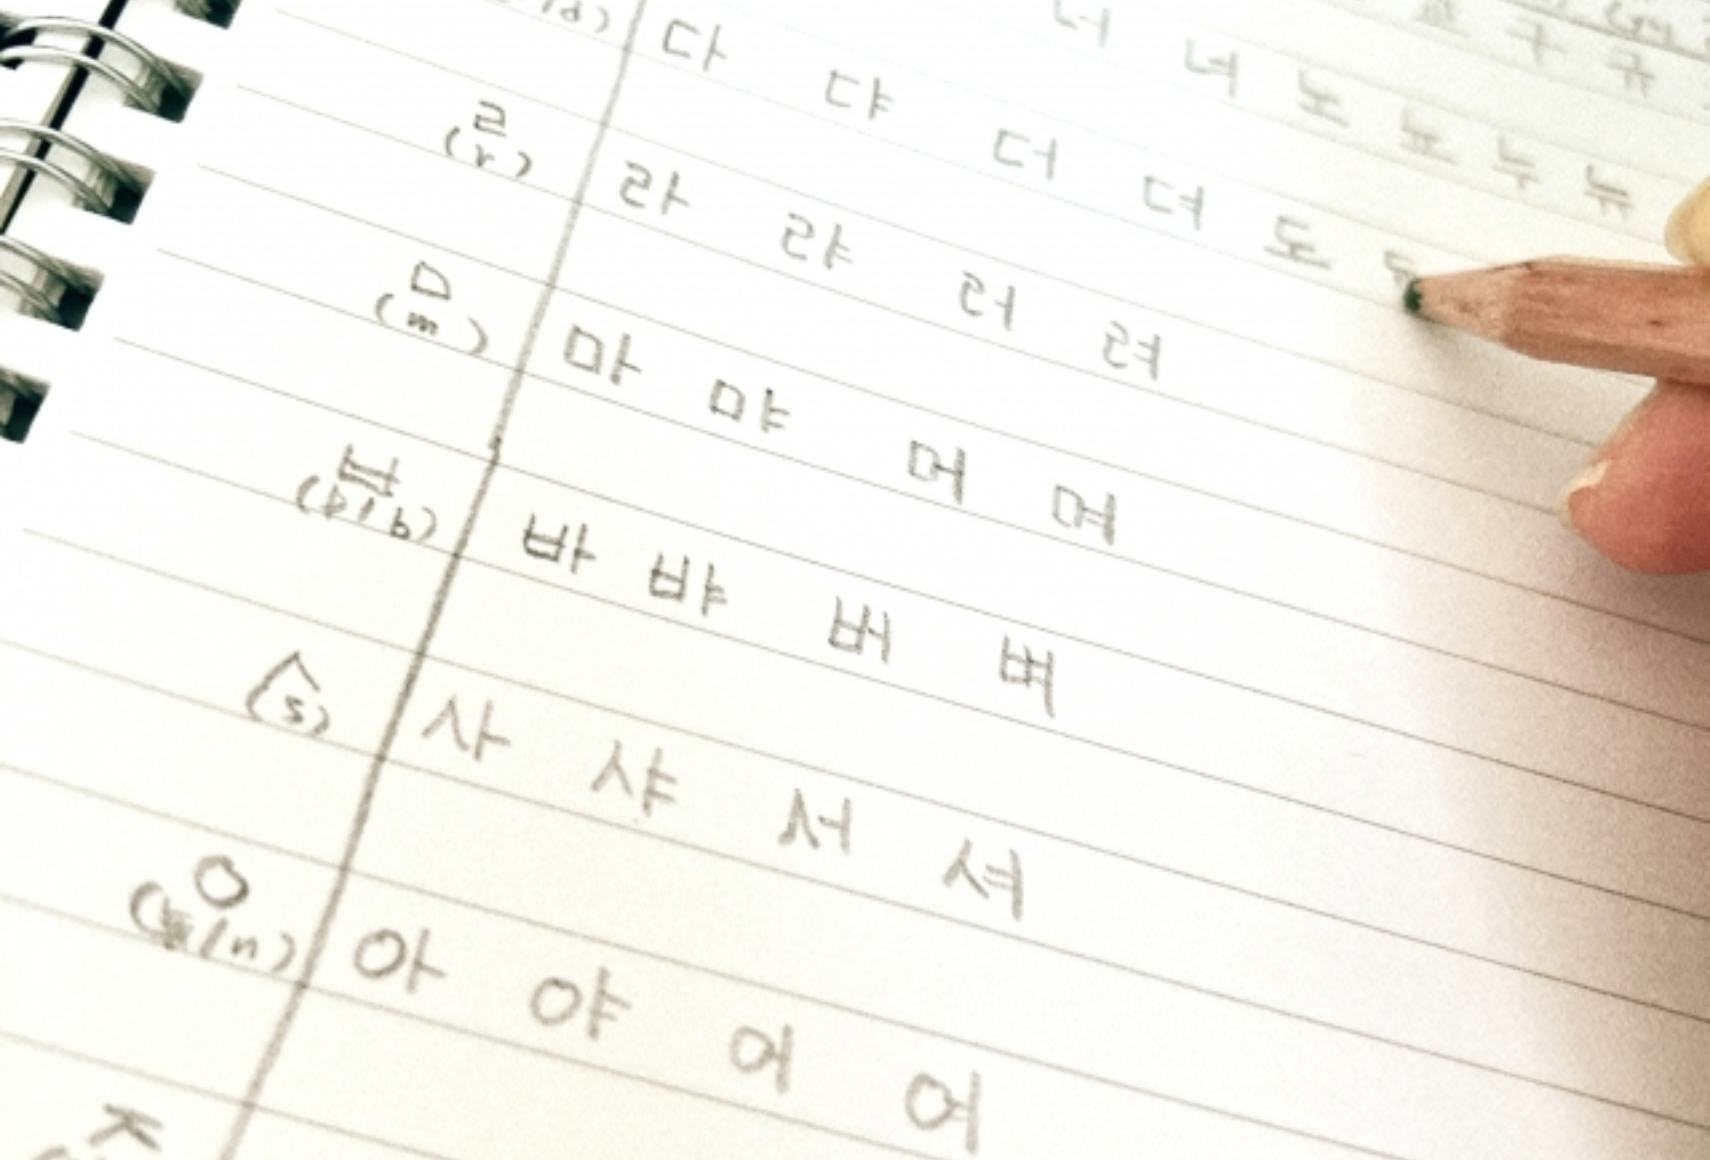 교 구 규
너 녀 노 뇨 누 뉴
/d) 다 댜 더 뎌 도
ㄹ
(r) 라 랴 러 려
ㅁ
(m) 마 먀 머 며
ㅂ
(p/b) 바 뱌 버 벼
ㅅ
(s) 사 샤 서 셔
ㅇ
/n) 아 야 어 여
ㅈ